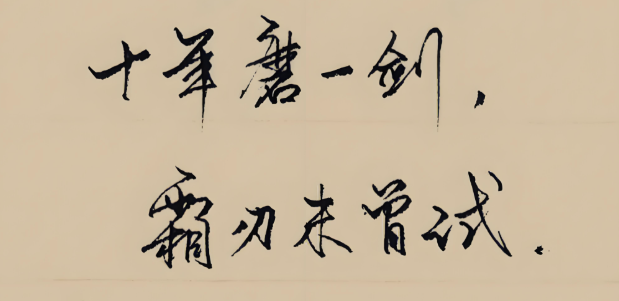 十年磨一剑，
霜刃未曾试。